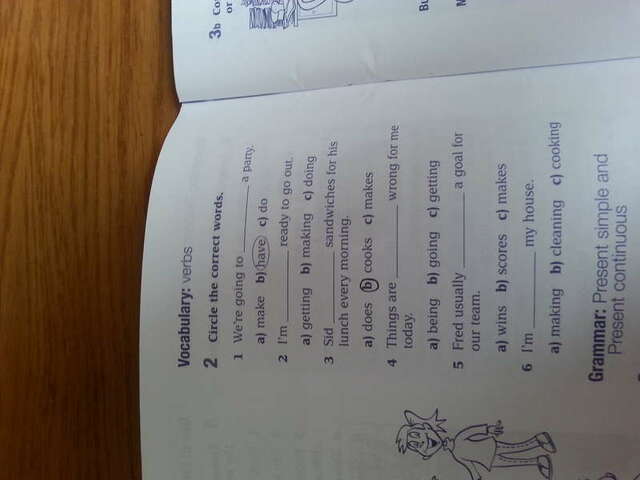 3b Co
or
Bu
Vocabulary: verbs
2 Circle the correct words.
1 We're going to ________ a party.
a) make b) have c) do
2 I'm ________ ready to go out.
a) getting b) making c) doing
3 Sid ________ sandwiches for his
lunch every morning.
a) does b) cooks c) makes
4 Things are ________ wrong for me
today.
a) being b) going c) getting
5 Fred usually ________ a goal for
our team.
a) wins b) scores c) makes
6 I'm ________ my house.
a) making b) cleaning c) cooking
Grammar: Present simple and
Present continuous